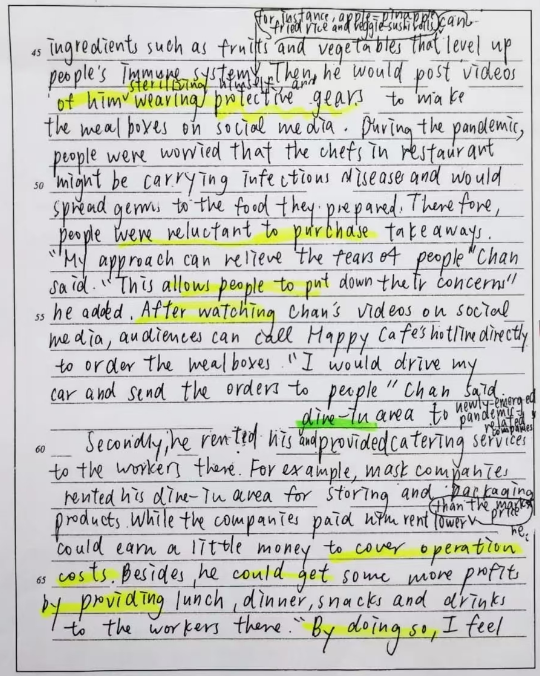 for instance, apple-pinapple
fried rice and veggie sushi rolls, can
45 ingredients such as fruits and vegetables that level up
people's immune system. Then he would post videos
sterilizing himself and
of him wearing protective gears to make
the meal boxes on social media. During the pandemic,
people were worried that the chefs in restaurant
50 might be carrying infectious diseases and would
spread germs to the food they prepared. Therefore,
people were reluctant to purchase takeaways.
"My approach can relieve the fears of people" Chan
said. "This allows people to put down their concerns"
55 he added. After watching Chan's videos on social
media, audiences can call Happy Cafe's hotline directly
to order the meal boxes. "I would drive my
car and send the orders to people" Chan said.
dine-in area to newly-emerged
pandemic-
related
companies
60 Secondly, he rented his and provided catering services
to the workers there. For example, mask companies
rented his dine-in area for storing and packaging
than the market
price
products. While the companies paid him rent lower he
could earn a little money to cover operation
65 costs. Besides, he could get some more profits
by providing lunch, dinner, snacks and drinks
to the workers there. "By doing so, I feel